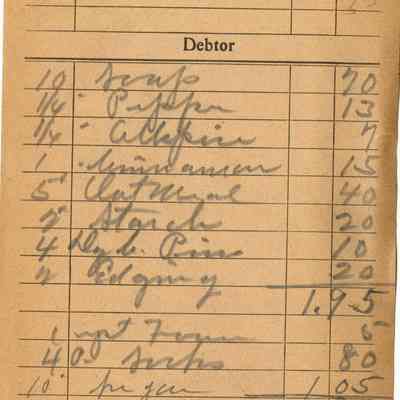 Debtor
10 Soap 70
1/4 " Peppr 13
1/4 " Allspice 7
1 " Cinnamon 15
5" Oat Meal 40
2" Starch 20
4 Doz. Pins 10
2 Edging 20
1.95
1 5
4 Socks 80
10 1 05